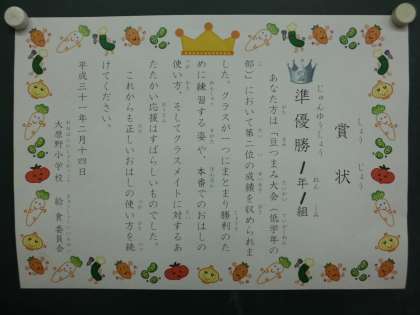 賞状
しょうじょう
準優勝 1年1組
じゅんゆうしょう ねん くみ
2
あなた方は「豆つまみ大会(低学年の
部)」において第二位の成績を収められま
した。クラスが一つにまとまり勝利のた
めに練習する姿や、本番でのおはしの
使い方、そしてクラスメイトに対するあ
たたかい応援はすばらしいものでした。
これからも正しいおはしの使い方を続
けてください。
平成三十一年二月十四日
大原野小学校 給食委員会